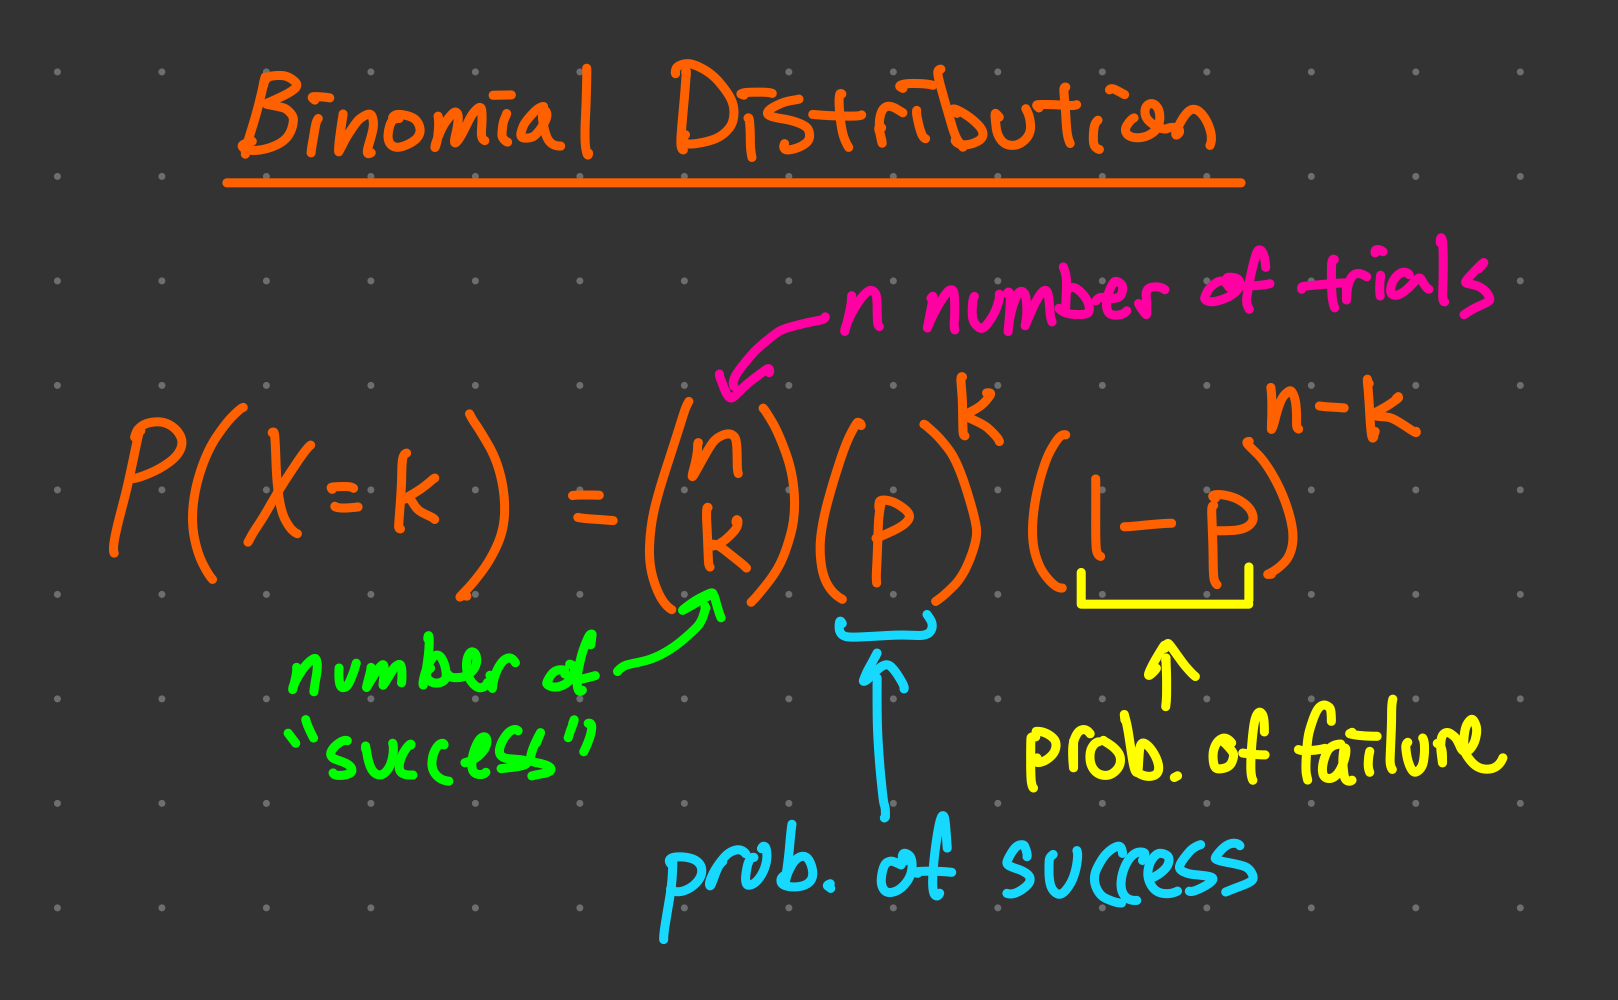 Binomial Distribution
n number of trials
P(X=k) = (n k)(p)^k (1-p)^n-k
number of
"success"
prob. of failure
prob. of success